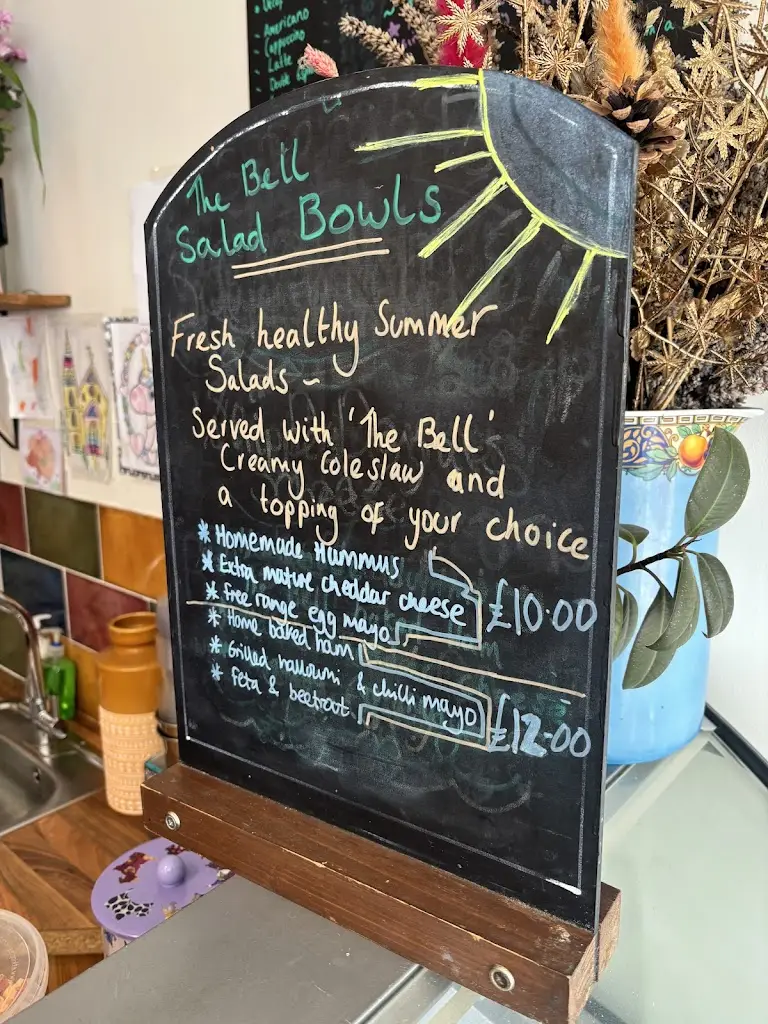 Americano
Cappuccino
Latte
The Bell
Salad Bowls
Fresh healthy Summer
Salads ~
Served with 'The Bell'
Creamy Coleslaw and
a topping of your choice
* Homemade Hummus
* Extra mature cheddar cheese
* Free range egg mayo
£10.00
* Home baked ham
* Grilled halloumi & chilli mayo
* Feta & beetroot
£12.00